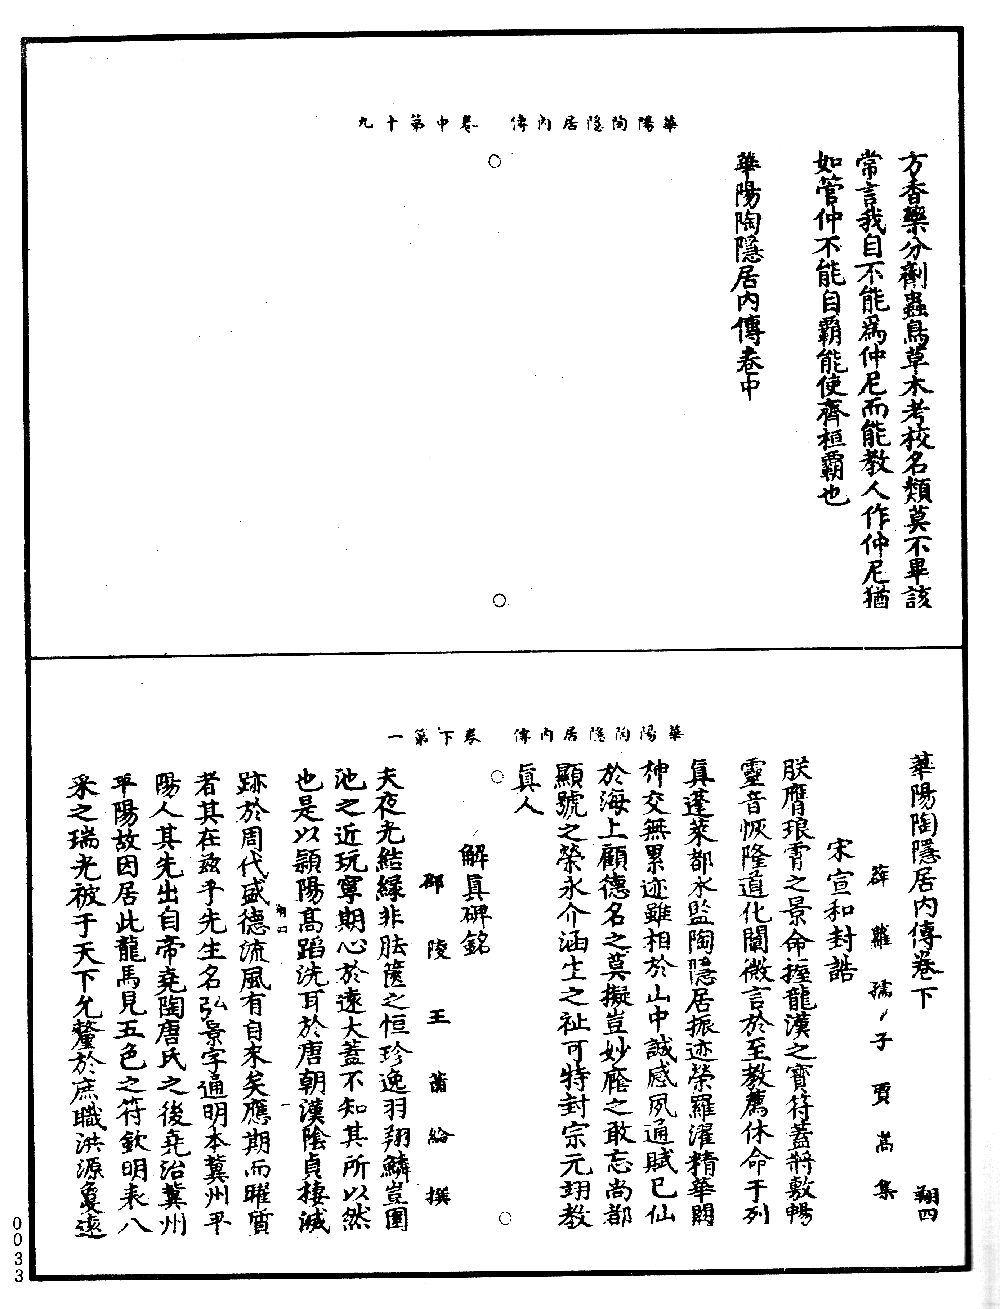 華陽陶隱居內傳　卷中第十九
方香藥分劑蟲鳥草木考校名類莫不畢該
常言我自不能爲仲尼而能教人作仲尼猶
如管仲不能自霸能使齊桓霸也
華陽陶隱居內傳卷中
華陽陶隱居內傳　卷下第一
華陽陶隱居內傳卷下　翔四
薜蘿孺子賈嵩集
宋宣和封誥
朕膺琅霄之景命握龍漢之寶符蓋將敷暢
靈音恢隆道化闡微言於至教薦休命于列
眞蓬萊都水監陶隱居振迹榮羅濯精華闕
神交無累迹雖相於山中誠感夙通賦已仙
於海上顧德名之莫擬豈妙應之敢忘尚都
顯號之榮永介涵生之祉可特封宗元翊教
眞人
解眞碑銘
邵陵王蕭綸撰
夫夜光結綠非胠篋之恒珍逸羽翔鱗豈園
池之近玩寧期心於遠大蓋不知其所以然
也是以頴陽高蹈洗耳於唐朝漢陰貞棲滅
跡於周代盛德流風有自來矣應期而曜質
者其在玆乎先生名弘景字通明本冀州平
陽人其先出自帝堯陶唐氏之後堯治冀州
平陽故因居此龍馬見五色之符欽明表八
釆之瑞光被于天下允釐於庶職洪源夐遠
0033